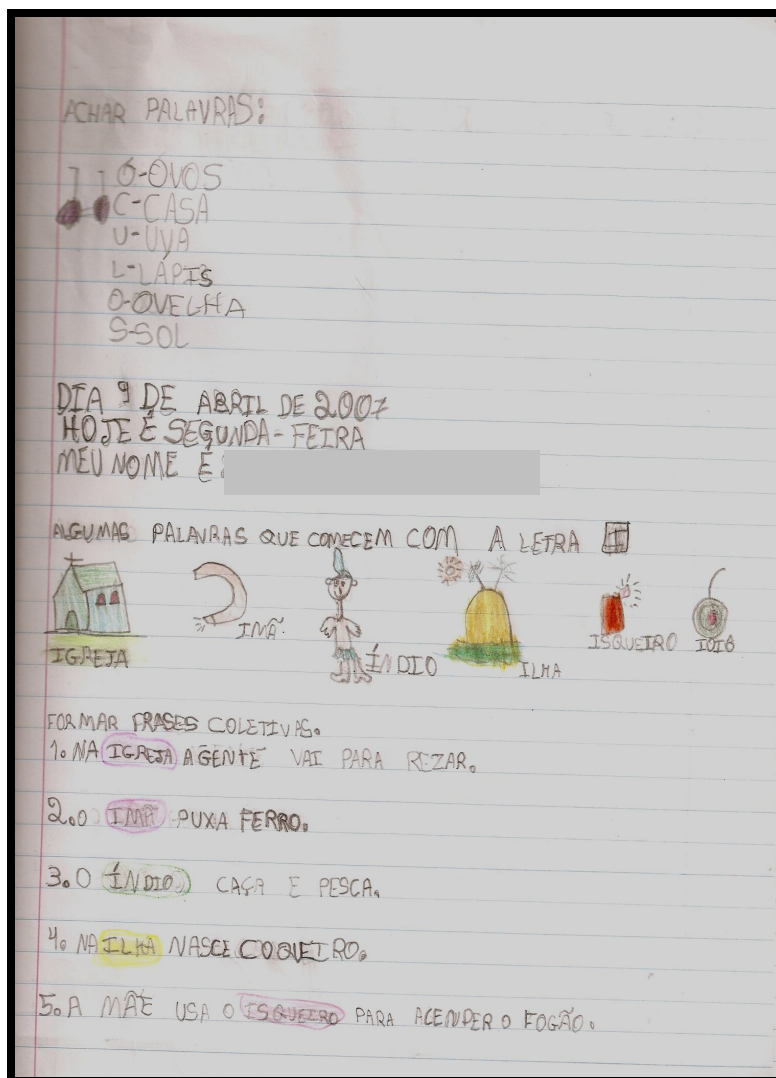 ACHAR PALAVRAS:
Ó-OVOS
C-CASA
U-UVA
L-LÁPIS
O-OVELHA
S-SOL
DIA 9 DE ABRIL DE 2007
HOJE É SEGUNDA-FEIRA
MEU NOME É:
ALGUMAS PALAVRAS QUE COMECEM COM A LETRA I
IGREJA IMÃ. ÍNDIO ILHA ISQUEIRO IOIÔ
FORMAR FRASES COLETIVAS.
1. NA IGREJA AGENTE VAI PARA REZAR.
2. O IMÃ PUXA FERRO.
3. O ÍNDIO CAÇA E PESCA.
4. NA ILHA NASCE COQUEIRO.
5. A MÃE USA O ISQUEIRO PARA ACENDER O FOGÃO.